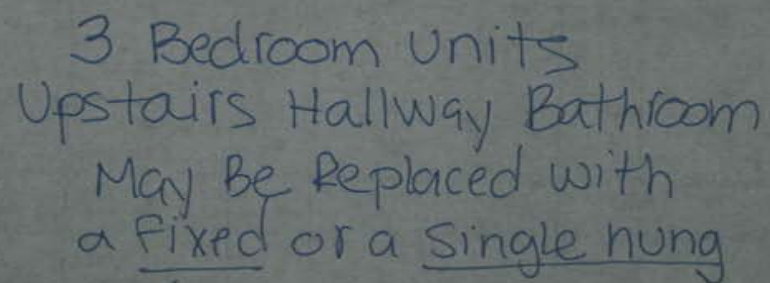 3 Bedroom Units
Upstairs Hallway Bathroom
May Be Replaced with
a fixed or a Single hung